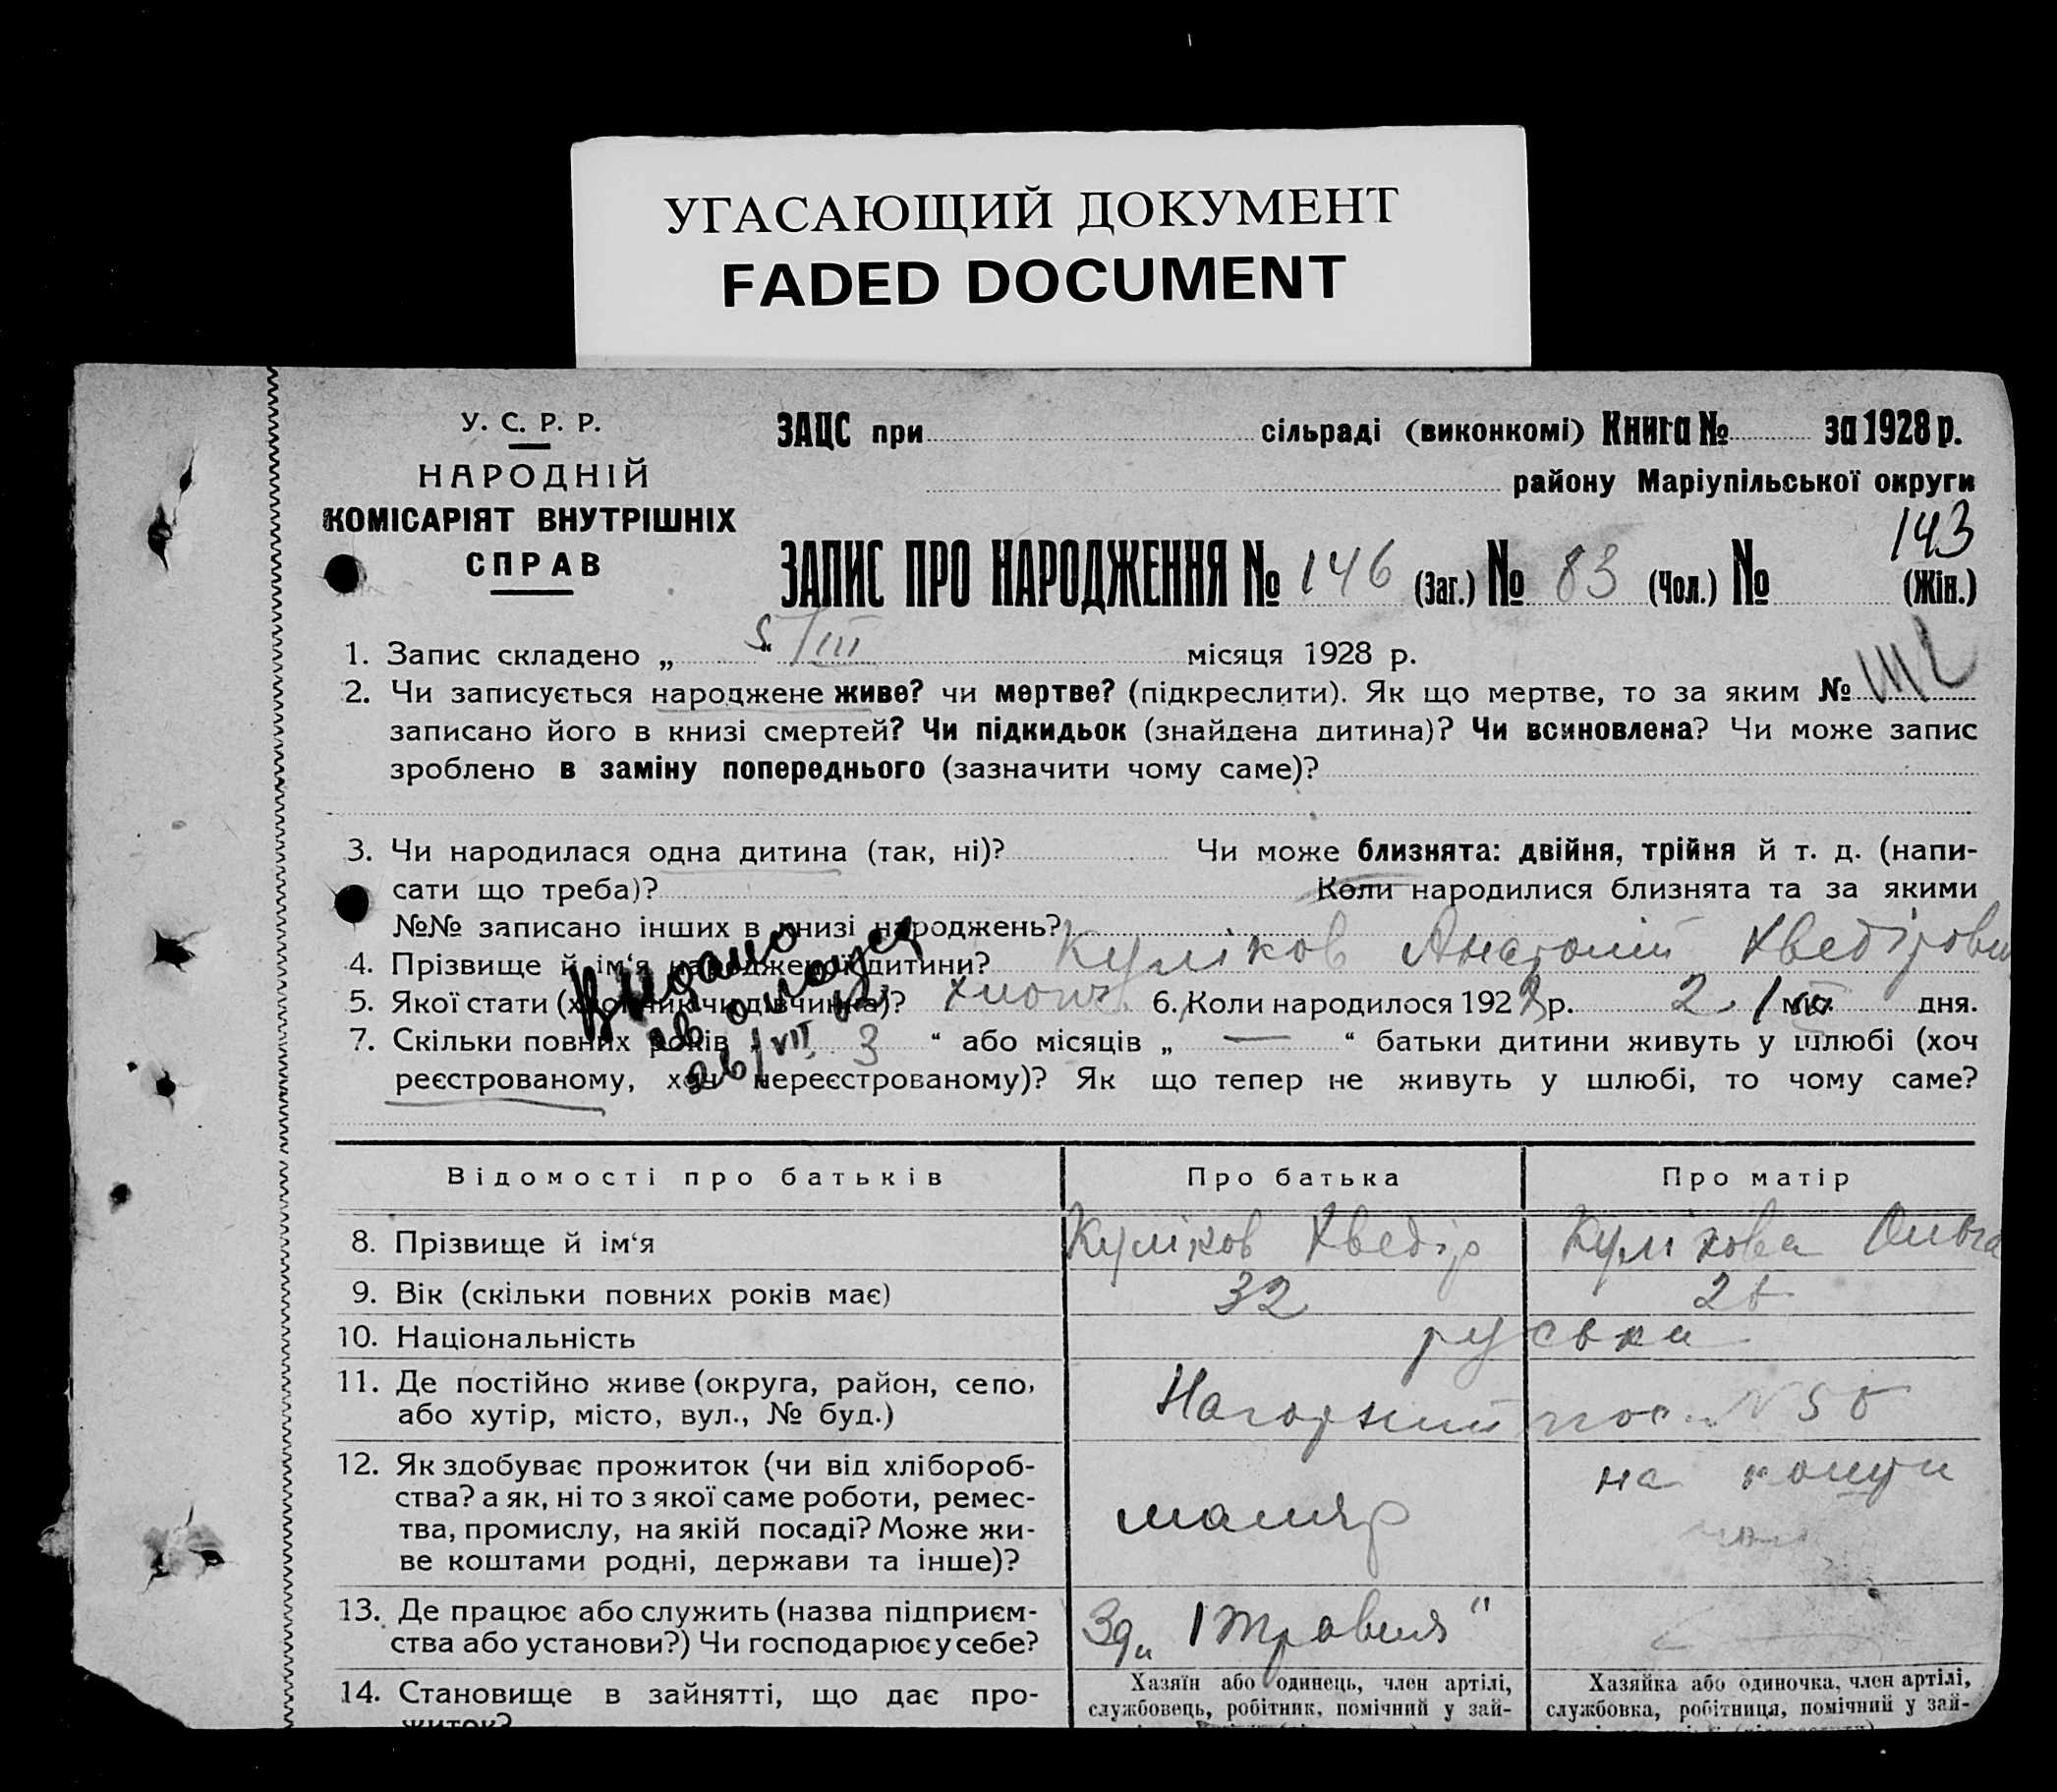 УГАСАЮЩИЙ ДОКУМЕНТ
FADED DOCUMENT
У. С. Р. Р.
НАРОДНІЙ
КОМІСАРІЯТ ВНУТРІШНІХ
СПРАВ
ЗАЦС при сільраді (виконкомі) Книга № за 1928 р.
району Маріупільської округи
143
ЗАПИС ПРО НАРОДЖЕННЯ № 146 (Заг.) № 83 (Чол.) № (Жін.)
1. Запис складено „ 5 “ /III місяця 1928 р.
2. Чи записується народжене живе? чи мертве? (підкреслити). Як що мертве, то за яким №
записано його в книзі смертей? Чи підкидьок (знайдена дитина)? Чи всиновлена? Чи може запис
зроблено в заміну попереднього (зазначити чому саме)?
3. Чи народилася одна дитина (так, ні)? Чи може близнята: двійня, трійня й т. д. (напи-
сати що треба)? Коли народилися близнята та за якими
№№ записано інших в книзі народжень?
4. Прізвище й ім‘я народженої дитини? Куліков Анатолій Хведірович
5. Якої стати (хлопчик чи дівчинка)? хлопч. 6. Коли народилося 1928 р. 2. / міс. дня.
Видано
26/VII
7. Скільки повних років „ 3 “ або місяців „ — “ батьки дитини живуть у шлюбі (хоч
реєстрованому, хоч нереєстрованому)? Як що тепер не живуть у шлюбі, то чому саме?
Відомості про батьків Про батька Про матір
8. Прізвище й ім‘я Куліков Хведір Кулікова Ольга
9. Вік (скільки повних років має) 32
10. Національність руська
11. Де постійно живе (округа, район, село,
або хутір, місто, вул., № буд.) Нагорний пос. №
12. Як здобуває прожиток (чи від хлібороб-
ства? а як, ні то з якої саме роботи, ремес-
тва, промислу, на якій посаді? Може жи-
ве коштами родні, держави та інше)?
маляр
на кошти
13. Де працює або служить (назва підприєм-
ства або установи?) Чи господарює у себе?
Зд „1 Травня“
14. Становище в зайнятті, що дає про-
житок?
Хазяїн або одинець, член артілі,
службовець, робітник, помічний у зай-
Хазяйка або одиночка, член артілі,
службовка, робітниця, помічний у зай-